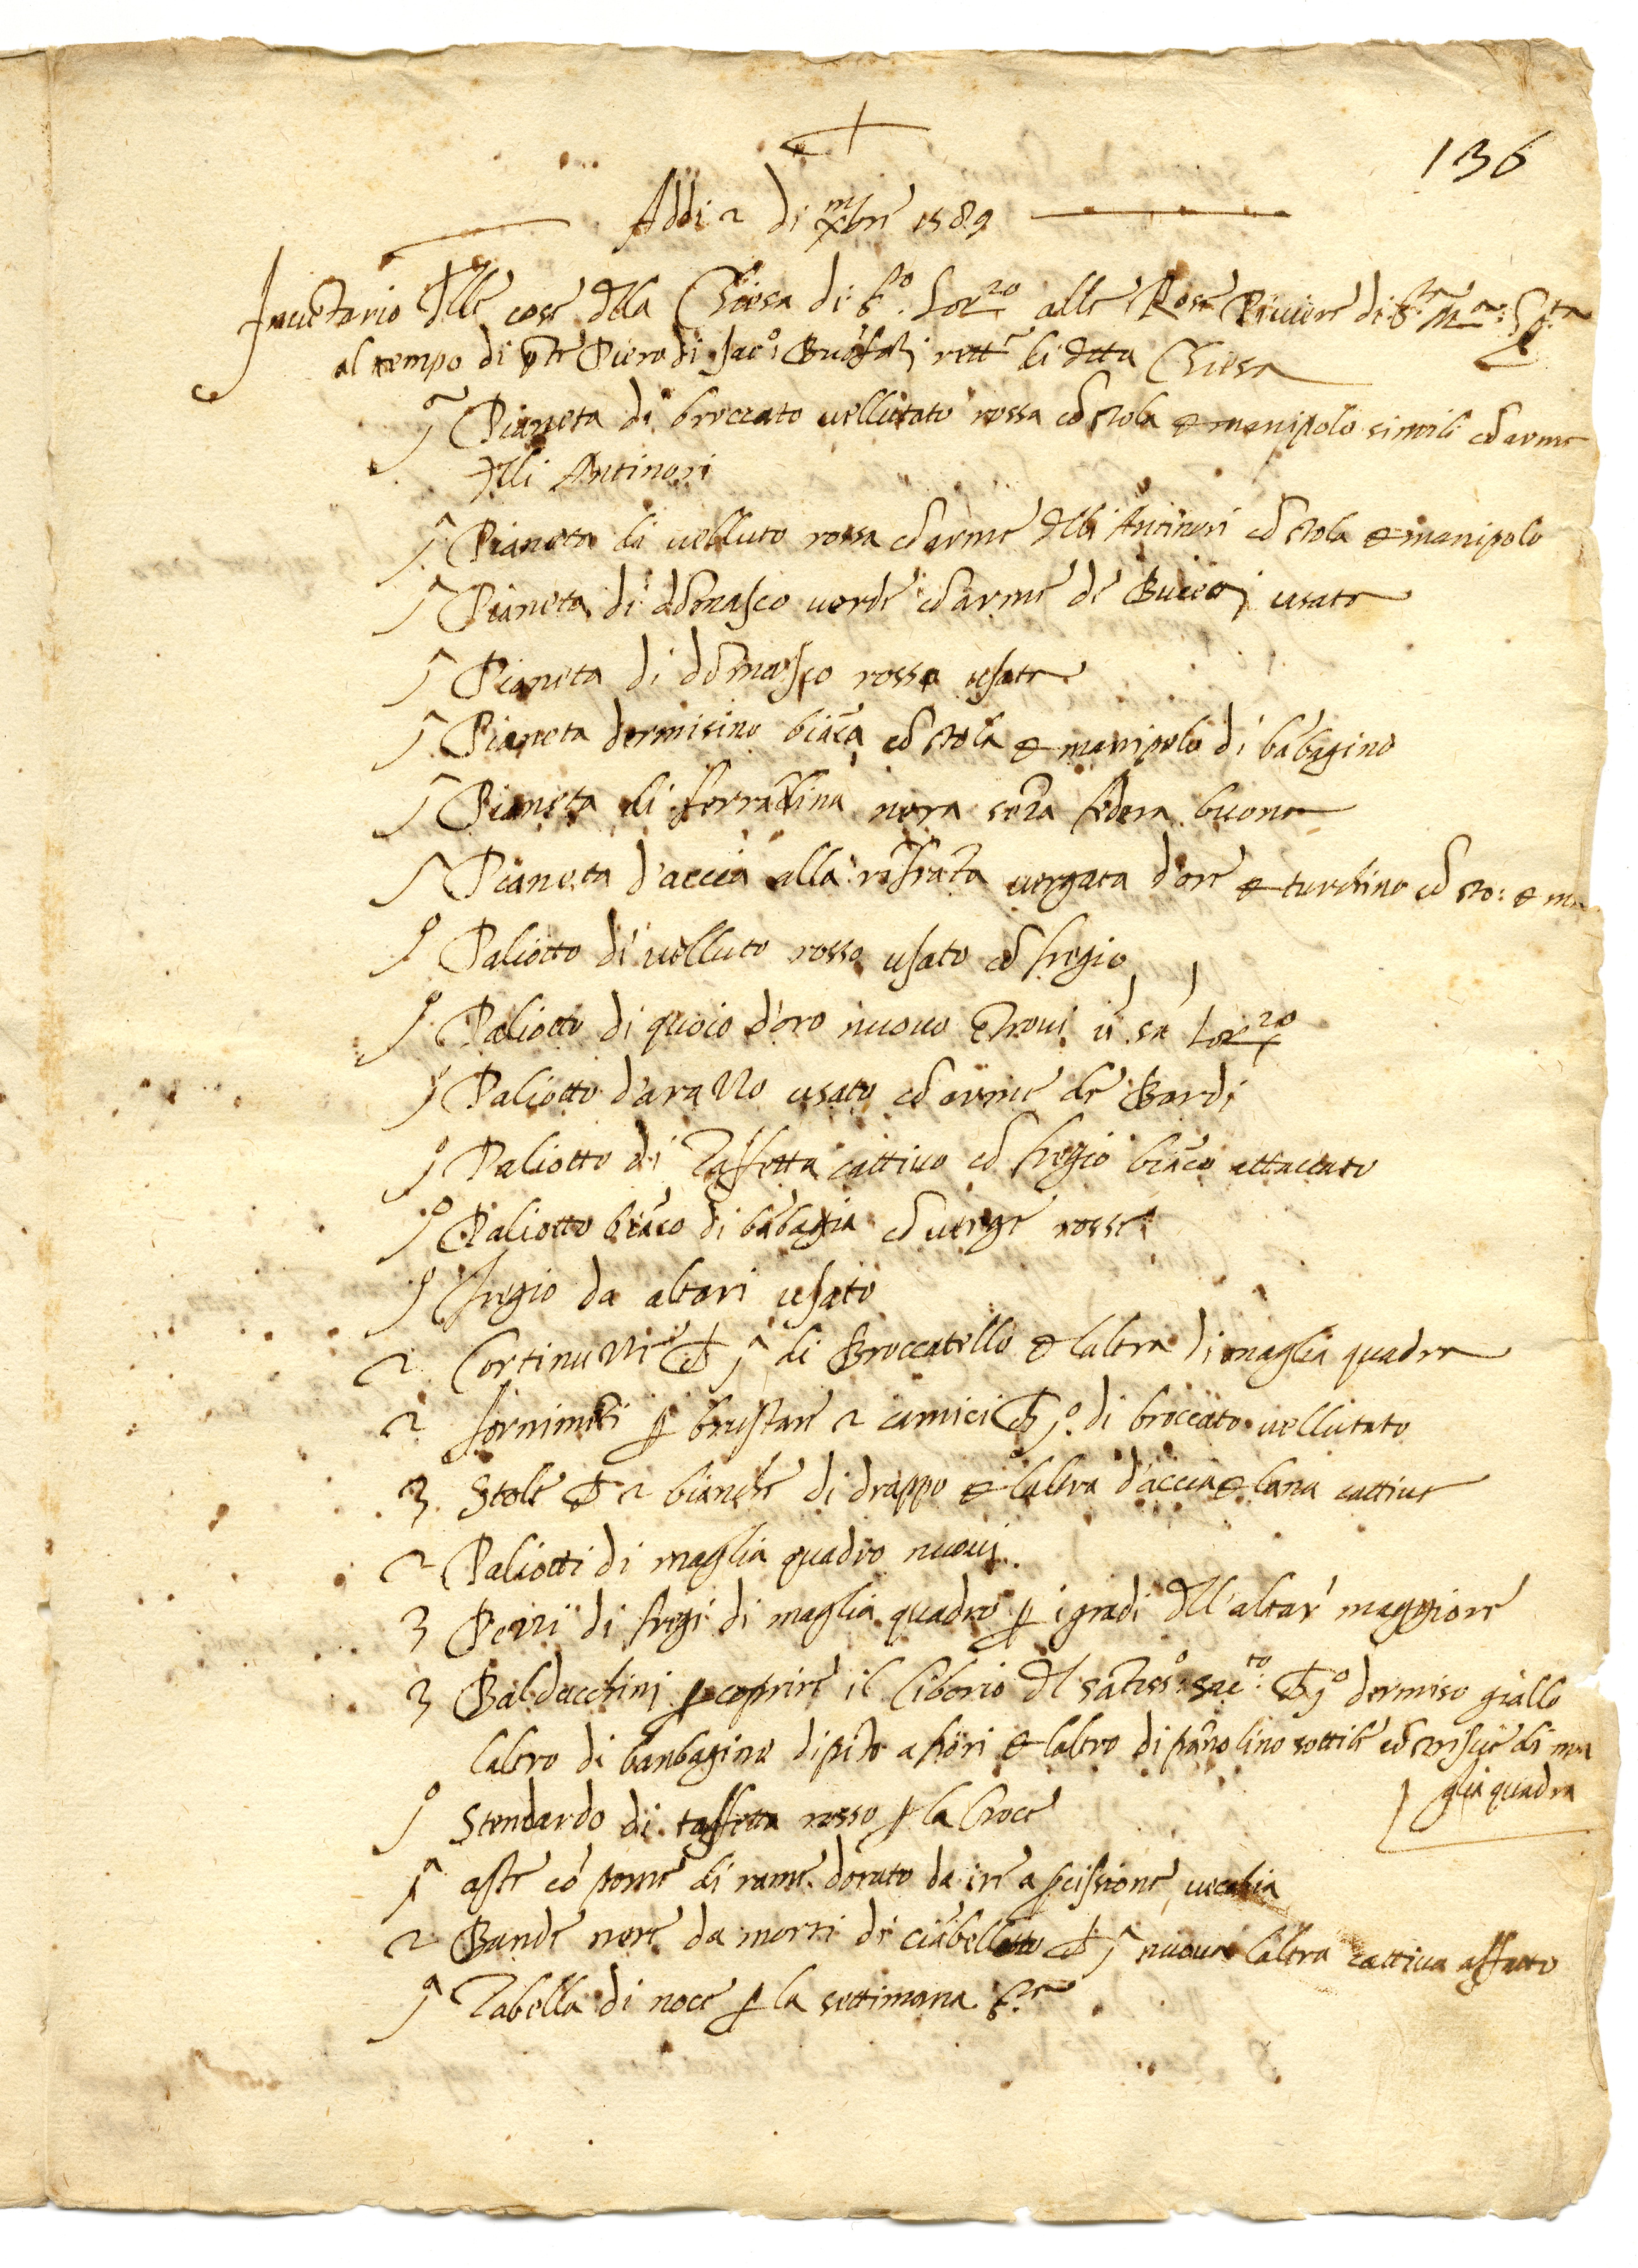 136
Addi 2 di xmbre 1589
Inuētario dlle cose dlla Chiesa di S.to Lor.zo alle Rose Piuiere di S.ta M.a
al tempo di pte Piero di Jac.o rett.e di dtta Chiesa
1a Pianeta di broccato uellutato rossa cō stola et manipolo simili cō arme
dlli Antinori
1a Pianeta di uelluto rossa cō arme dlli Antinori cō stola et manipolo
1a Pianeta di dōmasco uerde cō arme de usata
1a Pianeta di dōmasco rossa usata
1a Pianeta dermisino biāca cō stola et manipolo di bābagino
1a Pianeta di ferrādina nera sēza fodera buona
1a Pianeta d'accia alla uergata d'ore et turchino cō sto: et ma
1o Paliotto di uelluto rosso usato cō fregio
1o Paliotto di quoio d'oro nuouo ētroui ū sā Lor.zo
1o Paliotto d'arazzo usato cō arme de Bardi
1o Paliotto di Taffetta cattiuo cō fregio biāco attaccato
1o Paliotto biāco di bābagia cō uerge rosse
1o Fregio da altari usato
2 Cortinuzze cō 1a di Broccatello et laltra di maglia quadra
2 fornimēti p brustare 2 camici cō 1o di broccato uellutato
3 Stole cō 2 bianche di drappo et laltra d'accia et lana cattiue
2 Paliotti di maglia quadro nuoui
3 Pezzi di fregi di maglia quadro p i gradi dll'altar' maggiore
3 Baldacchini p coprire il Ciborio dl sātiss.o sac.to cō 1o dermiso giallo
laltro di banbagino dipīto a fiori et laltro di pāno lino sottile cō strisçie di ma
glia quadra
1o Stendardo di taffetta rosso p la Croce
1a aste cō pome di rame dorato da ire a pcissione uecchia
2 Bande nere da morti di ciābellotto cō 1a nuoua laltra cattiua affatto
1a Tabella di noce p la settimana S.ta